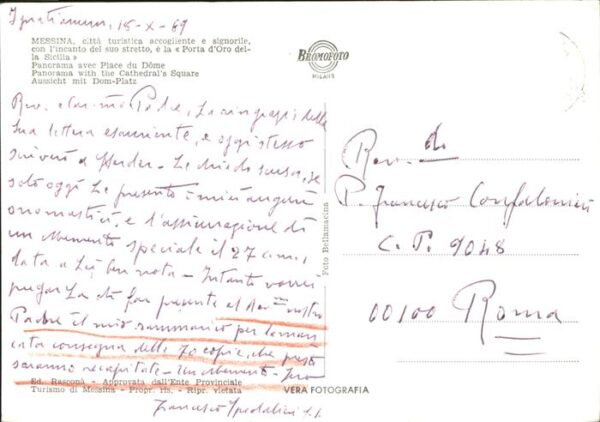 15-X-69
MESSINA, città turistica accogliente e signorile,
con l'incanto del suo stretto, è la « Porta d'Oro del-
la Sicilia »
Panorama avec Place du Dôme
Panorama with the Cathedral's Square
Aussicht mit Dom-Platz
BROMOFOTO
MILANO
Rev. e car.mo Padre, La ringrazio della
Sua lettera esauriente, e oggi stesso
scriverò a Herder. Le chiedo scusa, se
solo oggi Le presento i miei auguri
onomastici, e l'assicurazione di
un Memento speciale il 27 c.m.,
data a Lei ben nota - Intanto vorrei
pregarLa di far presente al Rev.mo nostro
Padre il mio rammarico per la man-
cata consegna delle 70 copie, che presto
saranno recapitate - Un Memento -
Francesco Spedalieri S.J.
Ed. Rasconà - Approvata dall'Ente Provinciale
Turismo di Messina - Propr. ris. - Ripr. vietata
Foto Bellamacina
VERA FOTOGRAFIA
Rev. do
P. Francesco Confalonieri
C.P. 9048
00100 Roma